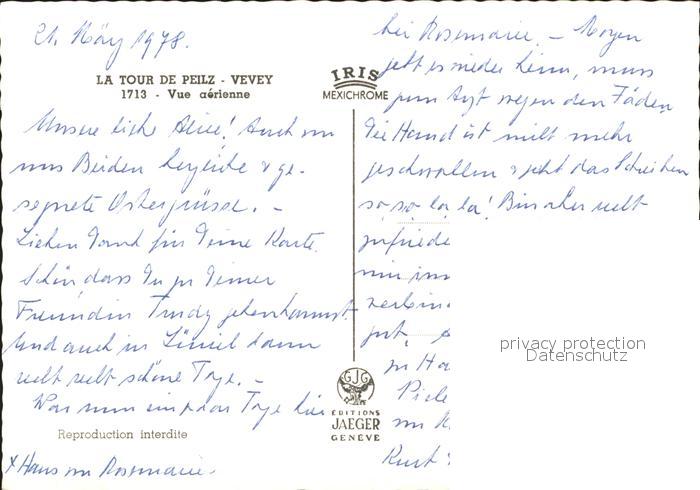 21. März 1978.
LA TOUR DE PEILZ - VEVEY
1713 - Vue aérienne
Unsere liebe Alice! Auch von
uns Beiden herzliche & ge-
segnete Ostergrüsse. -
Lieben Dank für Deine Karte.
Schön, dass Du zu Deiner
Freundin Trudy gehen kannst
und auch in dann
recht recht schöne Tage. -
War nun ein paar Tage hier
Reproduction interdite
x Hans von Rosmarie.
IRIS
MEXICHROME
EDITIONS
JAEGER
GENÈVE
bei Rosmarie. - Morgen
geht es wieder heim, muss
zum Arzt wegen den Fäden.
Die Hand ist nicht mehr
geschwollen & geht das Schreiben
so, so la, la! Bin aber recht
zufriede
verbin
gut.
zu Ha
Viele
von R
Kurt
privacy protection
Datenschutz